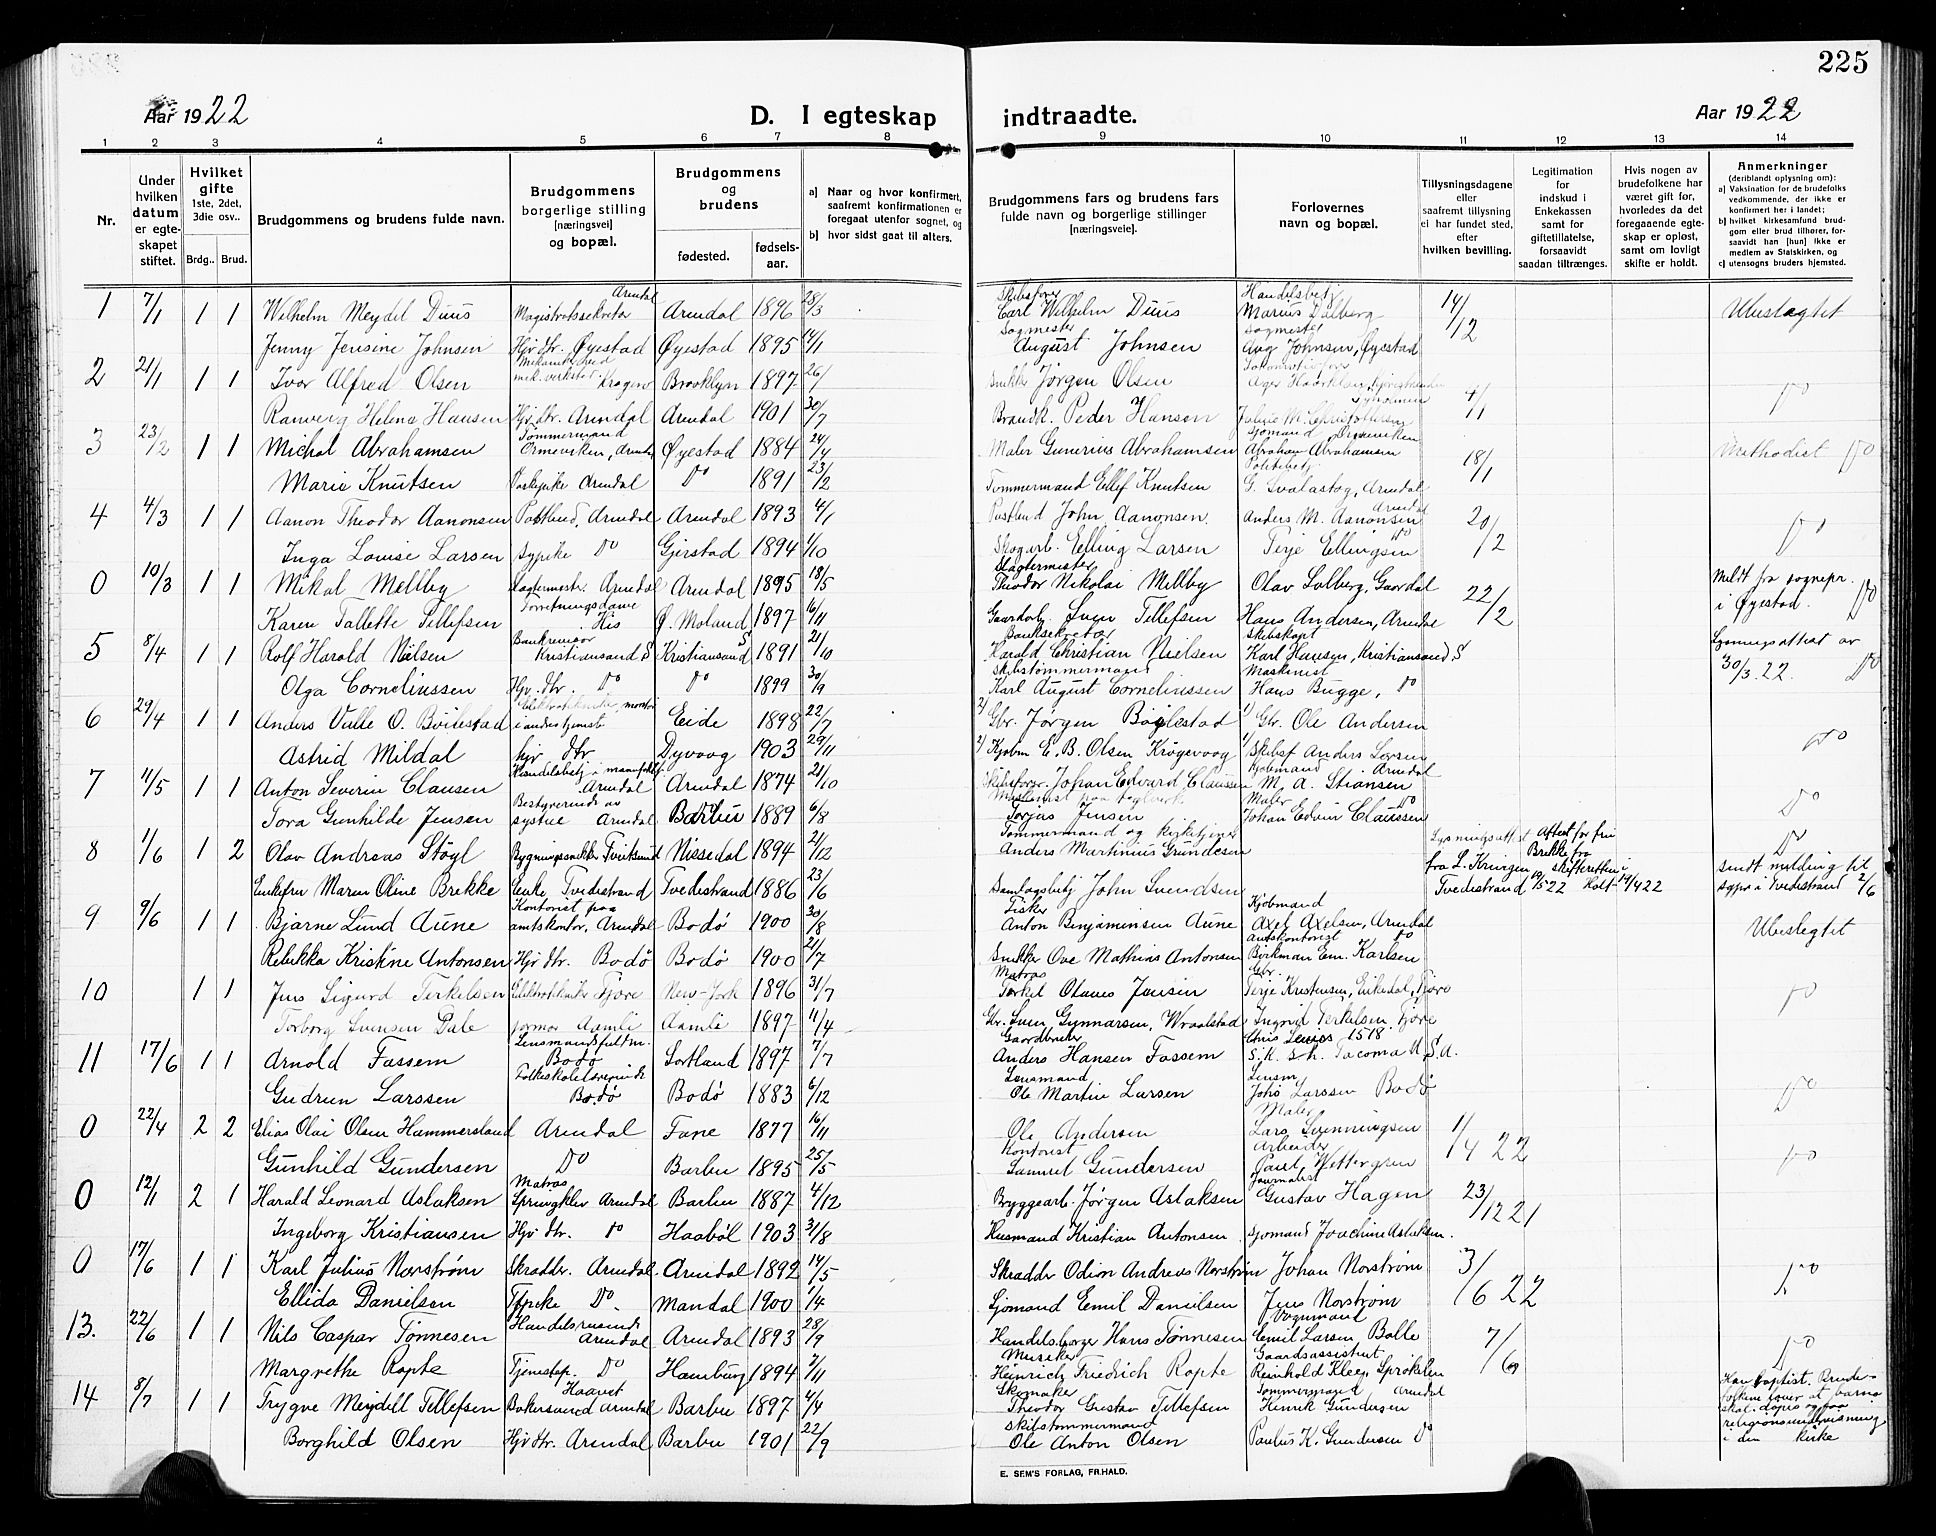 225
Aar 1922 D. I egteskap indtraadte. Aar 1922
1 2 3 4 5 6 7 8 9 10 11 12 13 14
Nr.
Under hvilken datum er egteskapet stiftet.
Hvilket gifte 1ste, 2det, 3die osv..
Brdg.. Brud.
Brudgommens og brudens fulde navn.
Brudgommens borgerlige stilling [næringsvei] og bopæl.
Brudgommens og brudens
fødested. fødsels-aar.
a) Naar og hvor konfirmert, saafremt konfirmationen er foregaat utenfor sognet, og
b) hvor sidst gaat til alters.
Brudgommens fars og brudens fars fulde navn og borgerlige stillinger [næringsveie].
Forlovernes navn og bopæl.
Tillysningsdagene eller saafremt tillysning ei har fundet sted, efter hvilken bevilling.
Legitimation for indskud i Enkekassen samt for giftetillatelse, forsaavidt saadan tiltrænges.
Hvis nogen av brudefolkene har været gift før, hvorledes da det foregaaende egteskap er opløst, samt om lovligt skifte er holdt.
Anmerkninger (deriblandt oplysning om):
a) Vaksination for de brudefolks vedkommende, der ikke er konfirmert her i landet;
b) hvilket kirkesamfund brudgom eller brud tilhører, forsaavidt han [hun] ikke er medlem av Statskirken, og
c) utensogns bruders hjemsted.
1 7/1 1 1 Wilhelm Meydel Duus Magistratssekretær Arendal Arendal 1896 28/3 Skibsfører Carl Wilhelm Duus Handelsbetj. Marius Dalberg 14/12 Ubeslægtet
Jenny Jensine Johnsen Hjv. dtr. Øyestad Øyestad 1895 14/1 Sagmester August Johnsen Sagmester Aug Johnsen, Øyestad
2 21/1 1 1 Ivor Alfred Olsen mek. verksted Kragerø Brooklyn 1897 26/ Snekker Jørgen Olsen 4/1 Do
Ranveig Helene Hansen Hjv. dtr. Arendal Arendal 1901 30/7 Brandk. Peder Hansen
3 23/2 1 1 Michal Abrahamsen Tømmermand Ormeviken, Arendal Øyestad 1884 24/4 Maler Gunerius Abrahamsen Abraham Abrahamsen 18/1 Methodist Do
Marie Knutsen Arendal Do 1891 23/2 Tømmermand Ellef Knutsen Politibetj. G. Svalastog, Arendal
4 4/3 1 1 Aanon Theodor Aanonsen Postbud, Arendal Arendal 1893 4/1 Postbud John Aanonsen. Anders M. Aanonsen Arendal 20/2 Do
Inga Louise Larsen Sypike Do Gjerstad 1894 1/10 Skogarb. Elling Larsen Terje Ellingsen Do
0 10/3 1 1 Mikal Mellby Slagtermester Arendal Arendal 1895 18/5 Slagtermester Theodor Nikolai Mellby Olav Solberg, Gaardal 22/2 Meldt fra sognepr. i Øyestad. Do
Karen Tallette Tellefsen Forretningsdame His Ø. Moland 1897 16/11 Gaardarb. Sven Tellefsen Hans Andersen, Arendal
5 8/4 1 1 Rolf Harald Nielsen Bankrevisor Kristiansand S Kristiansand S 1891 21/10 Banksekretær Harald Christian Nielsen Skibskapt Karl Hansen, Kristiansand S Lysningsattest av 30/3.22. Do
Olga Corneliussen Hjv. dtr. Do Do 1899 30/9 Skibstømmermand Karl August Corneliussen Maskinist Hans Bugge, Do
6 29/4 1 1 Anders Valle O. Bøilestad Eide 1898 22/7 2) Gbr. Jørgen Bøilestad 1) Gbr. Ole Andersen
Astrid Mildal hjv dtr Dyvaag 1903 29/11 2) Kjøbm E. B. Olsen Krogevaag 1) Skibsf Anders Larsen Do
7 11/5 1 1 Anton Severin Clausen Handelsbetj i manufaktur Arendal Arendal 1874 21/10 Skibsfører. Johan Edvard Claussen Kjøbmand Arendal M. A. Stiansen
Tora Gunhilde Jensen Bestyrerinde av systue Arendal Barbu 1889 6/8 Torjus Jensen Maler Do Johan Edvin Claussen Do
8 1/6 1 2 Olav Andreas Støyl Bygningssnekker Tveitsund Nissedal 1894 21/12 Tømmermand og kirketjener Anders Martinius Gundesen Lysningsattest fra L. Kringen Tvedestrand 19/5 22 Attest for fru Brekke fra skifteretten i Holt 19/4 22 Do sendt melding til sogne i Tvedestrand 2/6
Enkefru Maren Oline Brekke Enke Tvedestrand Tvedestrand 1886 23/6 John Svendsen
9 9/6 1 1 Bjarne Lund Aune Kontorist paa amtskontor, Arendal Bodø 1900 30/8 Fisker Anton Benjaminsen Aune Kjøbmand Axel Axelsen, Arendal Ubeslegtet
Rebekka Kristine Antonsen Hjv dtr. Bodö Bodö 1900 21/7 Snekker Ove Mathias Antonsen Amtskontorist Do Birkman Em. Karlsen
10 1 1 Jens Sigurd Terkelsen Elektrotekniker Fjære New-York 1896 31/7 Matros Terkel Olaves Jensen Gbr. Terje Kristensen, Eikedal, Fjære Do
Torborg Svensen Dale jormor Aamli Aamli 1897 11/4 Gbr. Sven Gunnarsen, Wraalstad Ingrid Terkelsen Fjære
11 17/6 1 1 Arnold Fassem Lensmandsfuldm. Bodø Sortland 1897 7/7 Gaardbruker Anders Hansen Fassem Chris 1518 S.K. St. Tacoma U.S.A.
Gudrun Larssen Folkeskolelærerinde Bodø Bodø 1883 6/12 Lensmand Ole Martin Larsen Lensm Johs Larssen Bodø Do
0 22/4 2 2 Elias Olai Olsen Hammersland Arendal Fane 1877 16/11 Ole Andersen Maler Lars Svenningsen 1/4 22
Gunhild Gundersen Do Barbu 1895 25/5 Kontorist Samuel Gundersen Arbeider Paul Wettergren Do
0 12/1 2 1 Harald Leonard Aslaksen Matros Springklev Arendal Barbu 1887 4/12 Bryggearb. Jørgen Aslaksen Journalist Gustav Hagen 23/12 21
Ingeborg Kristiansen Hjv dtr. Do Haabøl 1903 31/8 Husmand Kristian Antonsen Sjømand Joachim Aslaksen.
0 17/6 1 1 Karl Julius Norstrøm Skrædder. Arendal. Arendal 1892 14/5 Skrædder Odion Andreas Norstrøm Johan Norstrøm 3/6 22 Do
Ellida Danielsen Do Mandal 1900 1/4 Sjømand Emil Danielsen Jens Norstrøm
13. 22/6 1 1 Nils Caspar Tønnesen Handelsreisende Arendal Arendal 1893 28/9 Handelsborger Hans Tønnesen Vognmand Emil Larsen, Bolle 7/6 Do
Margrethe Ropte Tjenestep. Do Hamburg 1894 2/11 Musiker Heinrich Friedrich Ropte Gaardsassistent Reinhold Kleen, Sprøkilen
14 8/7 1 1 Trygve Meydell Tellefsen Bakersvend Arendal Barbu 1897 4/4 Skomaker Theodor Gustav Tellefsen Tømmermand Arendal Henrik Gundersen Han baptist. Brudefolkene lover at barna skal døpes og faa religionsundervisning i den kirke
Borghild Olsen Hjv dtr. Arendal Barbu 1901 22/9 Skibstømmermand Ole Anton Olsen Paulus K. Gundersen Do
E. SEM'S FORLAG, FR.HALD.